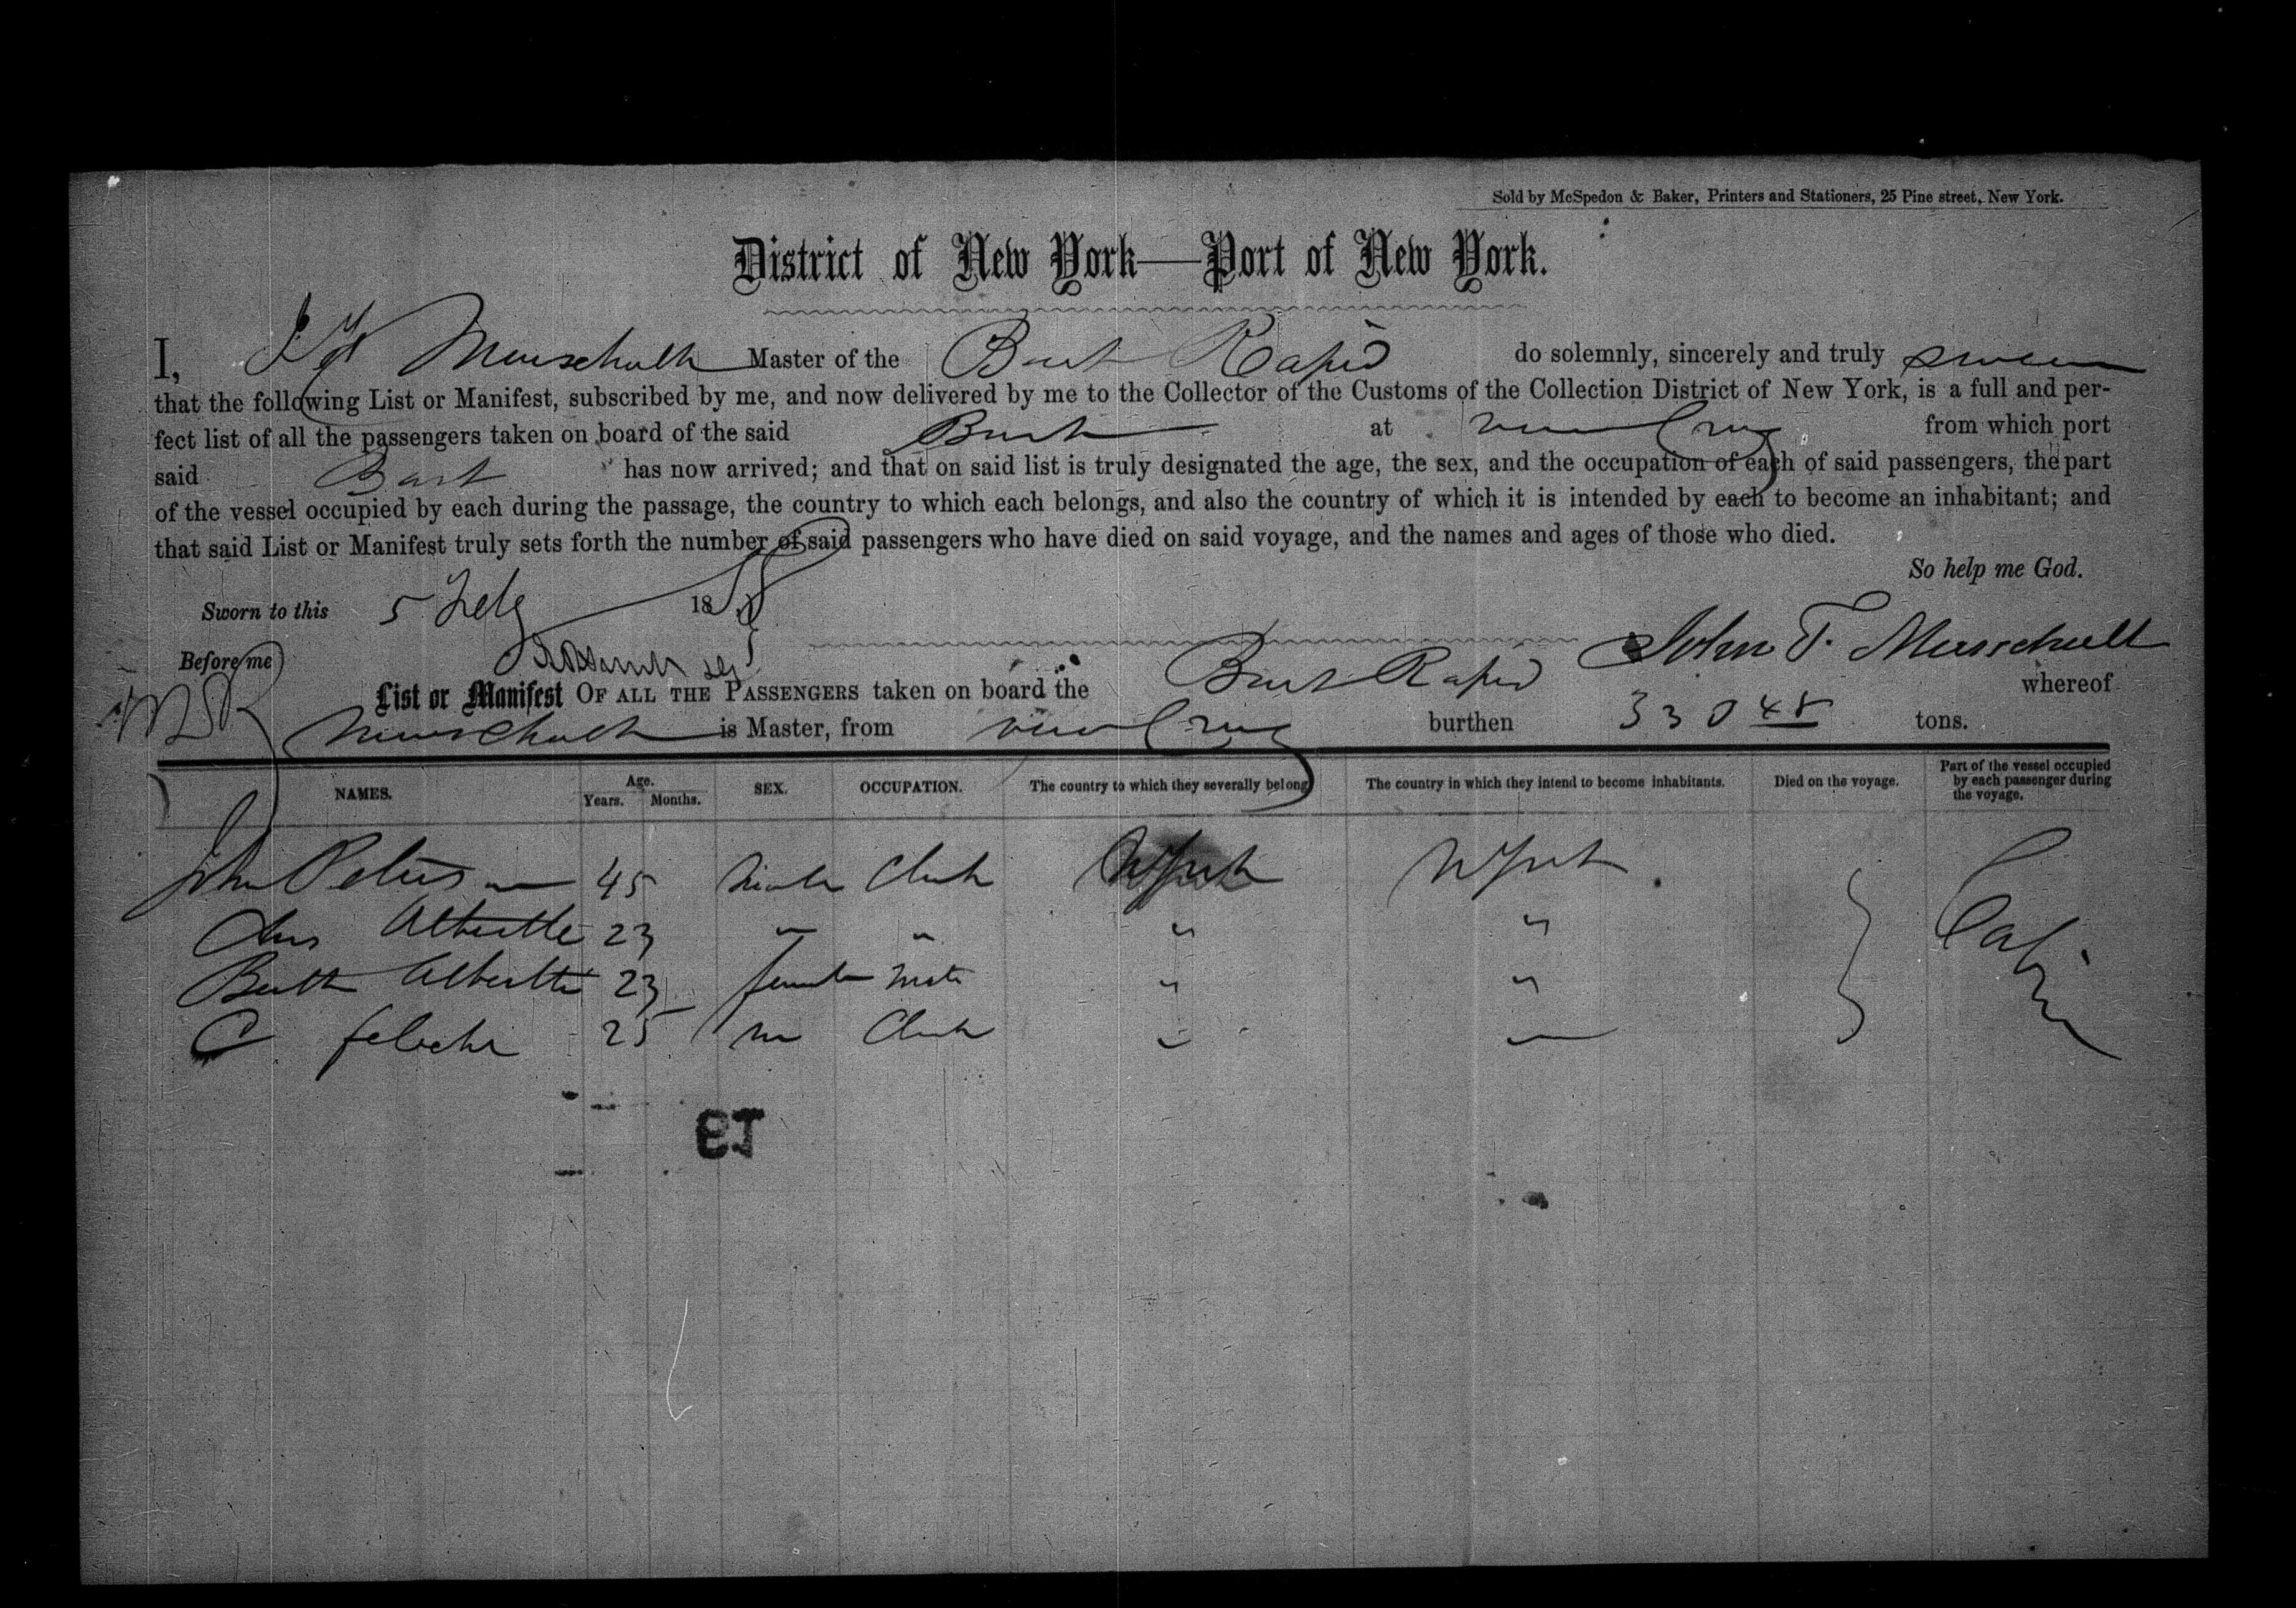 Sold by McSpedon & Baker, Printers and Stationers, 25 Pine street, New York.
District of New York—Port of New York.
I, Master of the Bark Rapid do solemnly, sincerely and truly swear
that the following List or Manifest, subscribed by me, and now delivered by me to the Collector of the Customs of the Collection District of New York, is a full and per-
fect list of all the passengers taken on board of the said Bark at Vera Cruz from which port
said Bark has now arrived; and that on said list is truly designated the age, the sex, and the occupation of each of said passengers, the part
of the vessel occupied by each during the passage, the country to which each belongs, and also the country of which it is intended by each to become an inhabitant; and
that said List or Manifest truly sets forth the number of said passengers who have died on said voyage, and the names and ages of those who died.
So help me God.
Sworn to this 5 Feby 18
John T.
Before me
List or Manifest OF ALL THE PASSENGERS taken on board the Bark Rapid whereof
is Master, from Vera Cruz burthen 330 48 tons.
NAMES. Age. Years. Months. SEX. OCCUPATION. The country to which they severally belong The country in which they intend to become inhabitants. Died on the voyage. Part of the vessel occupied by each passenger during the voyage.
John Peters 45 Male Clerk N York N York
23 " " " "
23 female " " Cabin
C 25 m Clerk "
13